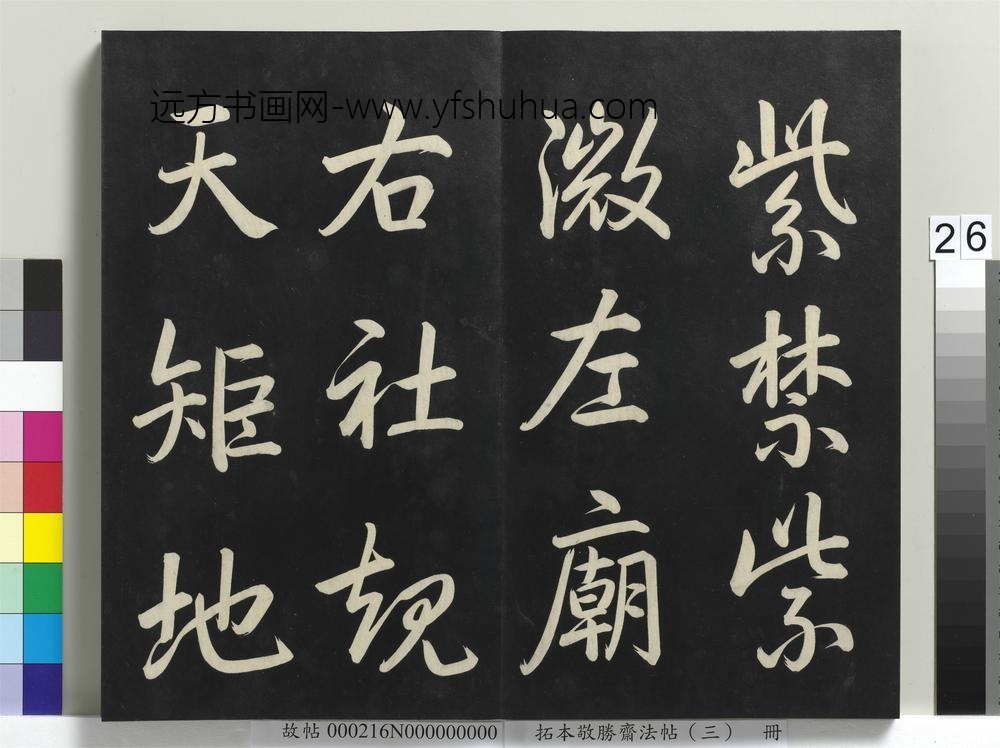 紫禁紫
微左廟
右社規
天矩地
远方书画网-www.yfshuhua.com
26
故帖 000216N000000000
拓本敬勝齋法帖（三） 冊